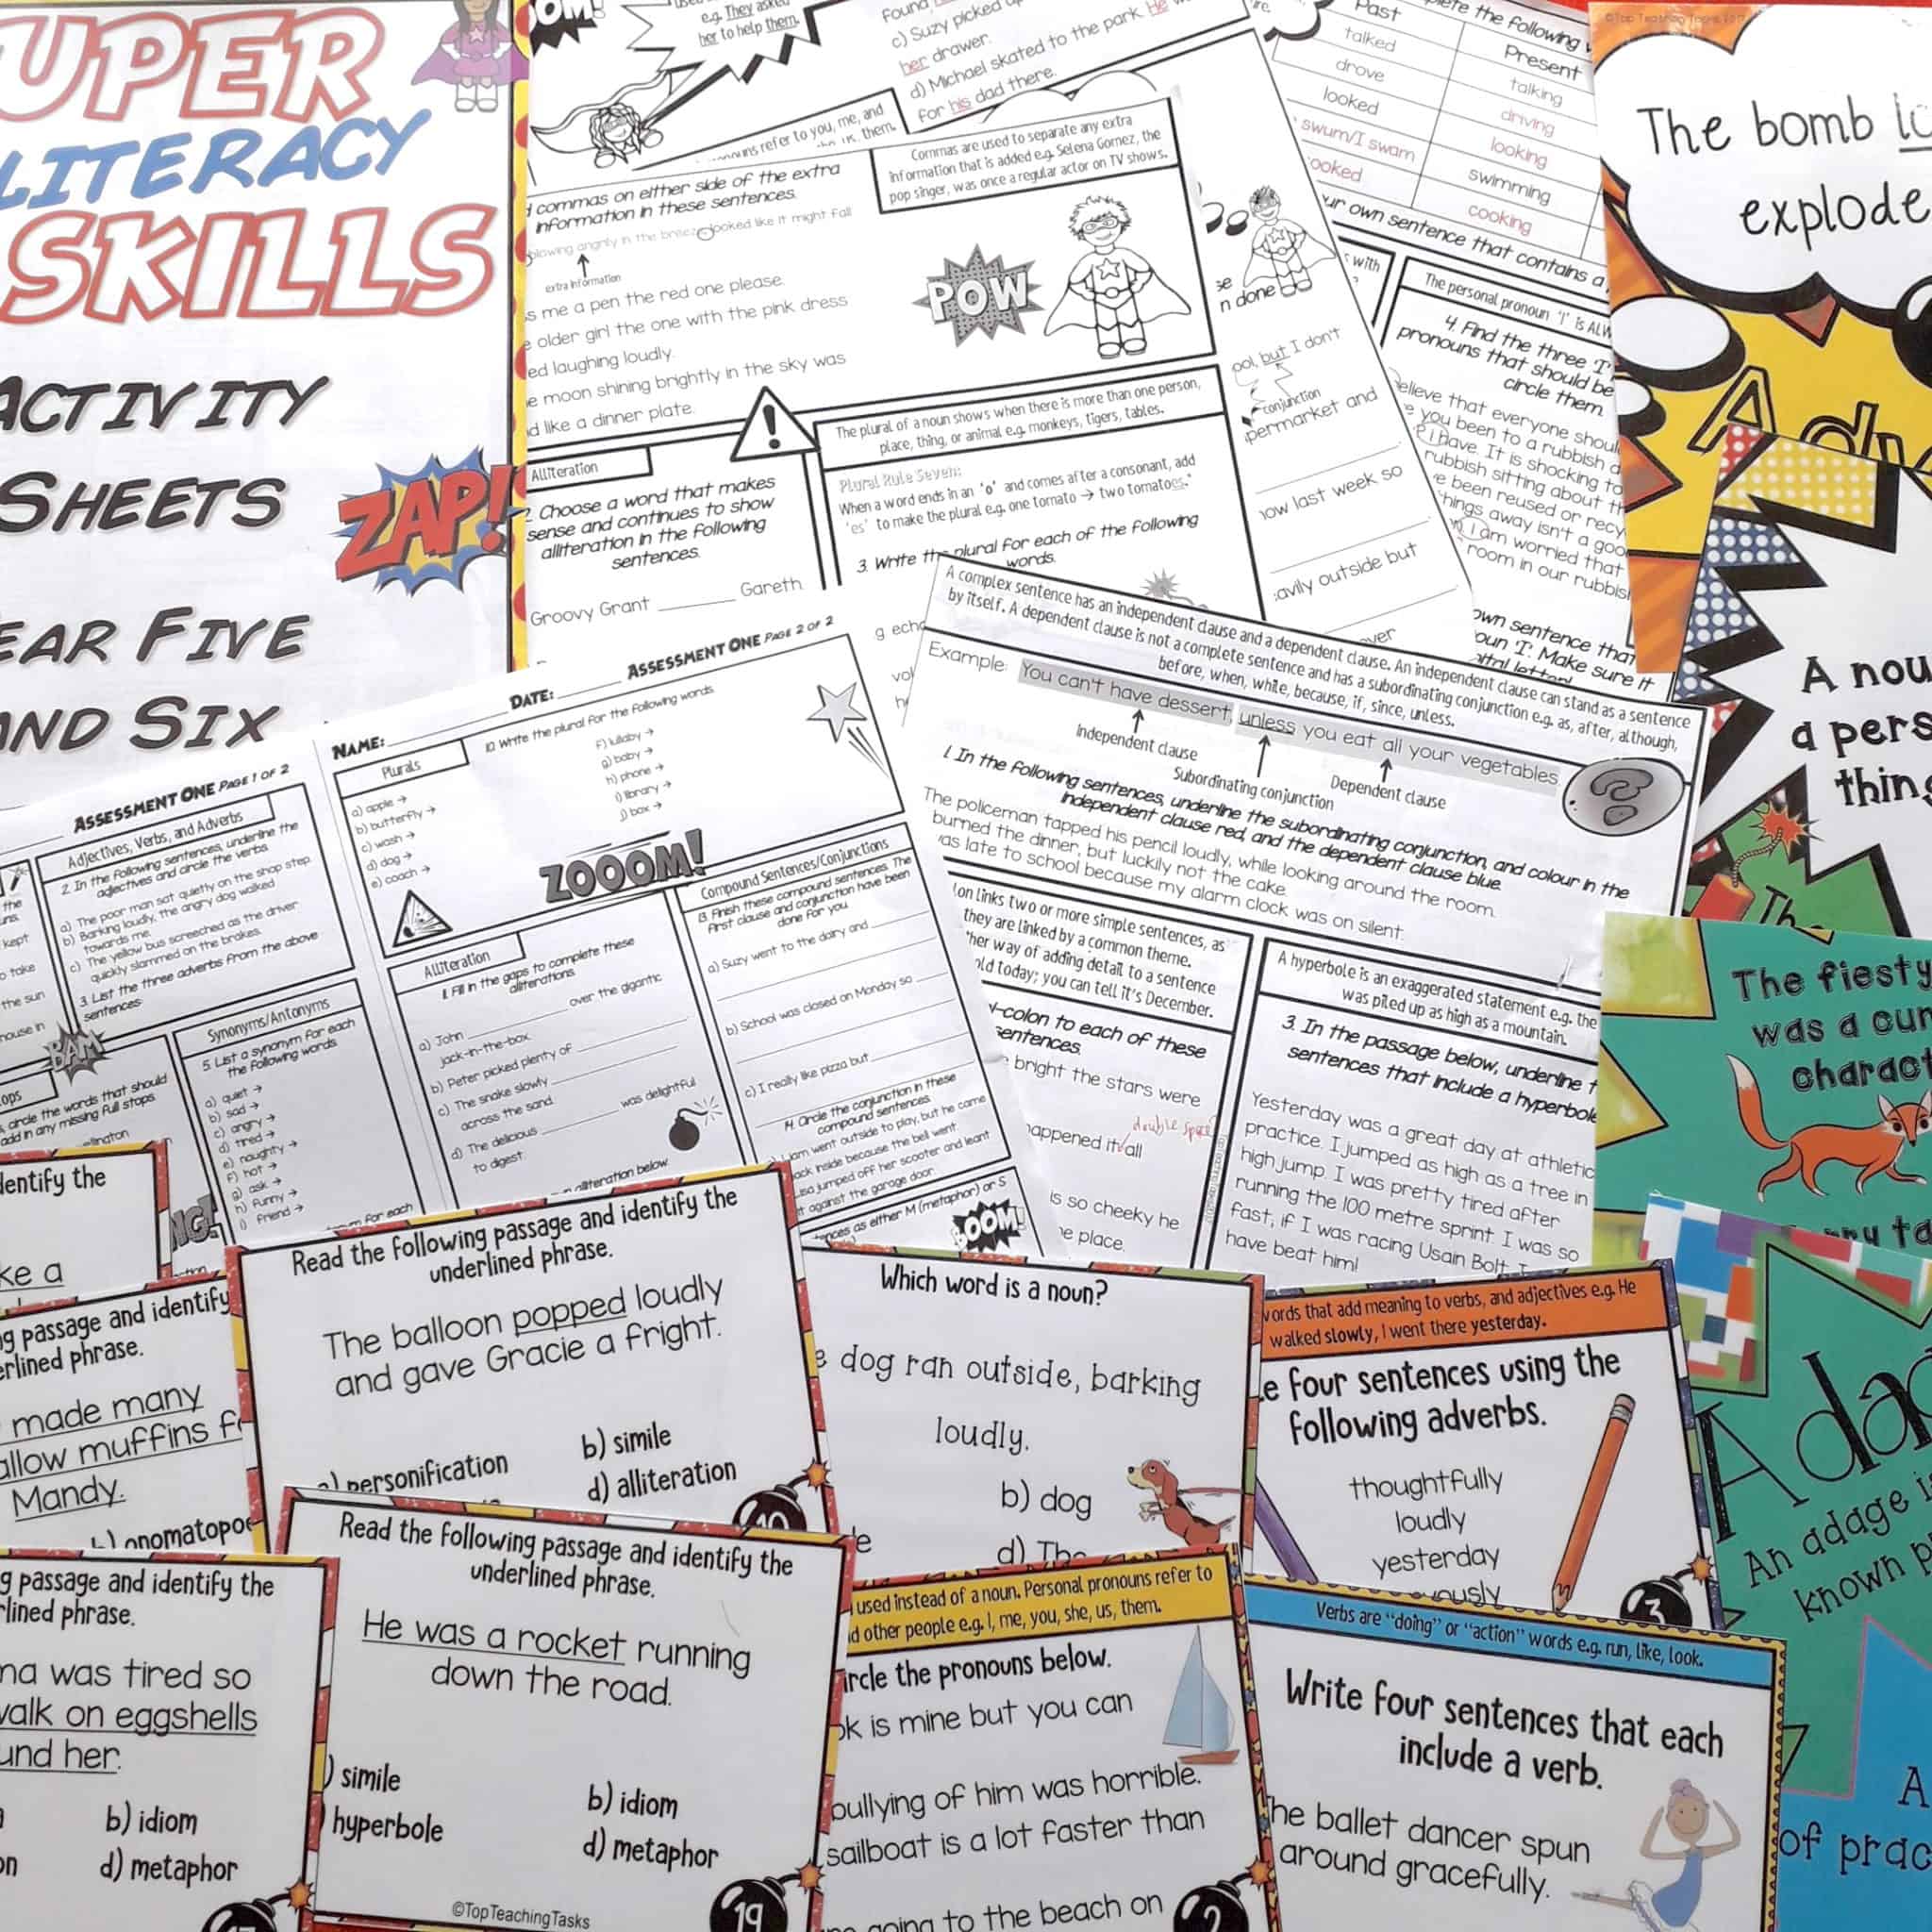 UPER
LITERACY
SKILLS
ACTIVITY
SHEETS
ZAP!
EAR FIVE
AND SIX
OOM!
e.g. They asked
her to help them.
c) Suzy picked
her drawer.
d) Michael skated to the park. He
for his dad there.
ouns refer to you, me, and
us, them.
commas on either side of the extra
information in these sentences.
blowing angrily in the breeze looked like it might fall
extra information
s me a pen the red one please.
e older girl the one with the pink dress
ed laughing loudly.
e moon shining brightly in the sky was
d like a dinner plate.
Commas are used to separate any extra
information that is added e.g. Selena Gomez, the
pop singer, was once a regular actor on TV shows.
POW
Alliteration
2. Choose a word that makes
sense and continues to show
alliteration in the following
sentences.
Groovy Grant ______ Gareth.
The plural of a noun shows when there is more than one person,
place, thing, or animal e.g. monkeys, tigers, tables.
Plural Rule Seven:
When a word ends in an 'o' and comes after a consonant, add
'es' to make the plural e.g. one tomato → two tomatoes.
3. Write the plural for each of the following
words.
g echo
n done
ool, but I don't
conjunction
permarket and
now last week so
avily outside but
Past
Present
talked
talking
drove
driving
looked
looking
swum/I swam
swimming
ooked
cooking
ur own sentence that contains a
The personal pronoun 'I' is ALW
4. Find the three 'I'
pronouns that should be
circle them.
elieve that everyone shoul
e you been to a rubbish d
I have. It is shocking to
rubbish sitting about th
e been reused or recy
things away isn't a goo
I am worried that
room in our rubbis
own sentence that
oun 'I'. Make sure it
©Top Teaching Tasks 2017
The bomb
explode
Adv
A nou
a pers
thing
The fiesty
was a cur
charact
Adag
An adage i
known p
A
of prac
NAME: ______ DATE: ______ ASSESSMENT ONE PAGE 2 OF 2
Plurals
10. Write the plural for the following words.
a) apple →
b) butterfly →
c) wash →
d) dog →
e) coach →
f) lullaby →
g) baby →
h) phone →
i) library →
j) box →
ZOOOM!
Alliteration
11. Fill in the gaps to complete these
alliterations.
a) John ______ over the gigantic
jack-in-the-box.
b) Peter picked plenty of ______
c) The snake slowly ______
across the sand.
d) The delicious ______ was delightful
to digest.
alliteration below.
Compound Sentences/Conjunctions
13. Finish these compound sentences. The
first clause and conjunction have been
done for you.
a) Suzy went to the dairy and ______
b) School was closed on Monday so ______
c) I really like pizza but ______
14. Circle the conjunction in these
compound sentences.
iam went outside to play, but he came
ack inside because the bell went.
isa jumped off her scooter and leant
it against the garage door.
ences as either M (metaphor) or S
BOOM!
ASSESSMENT ONE PAGE 1 OF 2
Adjectives, Verbs, and Adverbs
2. In the following sentences, underline the
adjectives and circle the verbs.
a) The poor man sat quietly on the shop step.
b) Barking loudly, the angry dog walked
towards me.
c) The yellow bus screeched as the driver
quickly slammed on the brakes.
3. List the three adverbs from the above
sentences.
kept
o take
the sun
mouse in
BAM
circle the words that should
add in any missing full stops.
Synonyms/Antonyms
5. List a synonym for each
of the following words.
a) quiet →
b) sad →
c) angry →
d) tired →
e) naughty →
f) hot →
g) ask →
h) funny →
i) friend →
A complex sentence has an independent clause and a dependent clause. An independent clause can stand as a sentence
by itself. A dependent clause is not a complete sentence and has a subordinating conjunction e.g. as, after, although,
before, when, while, because, if, since, unless.
Example: You can't have dessert, unless you eat all your vegetables.
Independent clause
Subordinating conjunction
Dependent clause
1. In the following sentences, underline the subordinating conjunction, and colour in the
independent clause red, and the dependent clause blue.
The policeman tapped his pencil loudly, while looking around the room.
burned the dinner, but luckily not the cake.
as late to school because my alarm clock was on silent.
on links two or more simple sentences, as
they are linked by a common theme.
her way of adding detail to a sentence
old today; you can tell it's December.
-colon to each of these
sentences.
bright the stars were
happened it all
double space
is so cheeky he
e place.
A hyperbole is an exaggerated statement e.g. the
was piled up as high as a mountain.
3. In the passage below, underline t
sentences that include a hyperbole
Yesterday was a great day at athletic
practice. I jumped as high as a tree in
high jump. I was pretty tired after
running the 100 metre sprint. I was so
fast, if I was racing Usain Bolt, I
have beat him!
dentify the
ke a
g passage and identify
erlined phrase.
made many
allow muffins f
Mandy.
onomatopoe
Read the following passage and identify the
underlined phrase.
The balloon popped loudly
and gave Gracie a fright.
personification
b) simile
d) alliteration
Which word is a noun?
e dog ran outside, barking
loudly.
b) dog
d) The
words that add meaning to verbs, and adjectives e.g. He
walked slowly, I went there yesterday.
e four sentences using the
following adverbs.
thoughtfully
loudly
yesterday
3
g passage and identify the
rlined phrase.
na was tired so
walk on eggshells
und her.
b) idiom
d) metaphor
Read the following passage and identify the
underlined phrase.
He was a rocket running
down the road.
) simile
b) idiom
hyperbole
d) metaphor
©TopTeachingTasks
19
used instead of a noun. Personal pronouns refer to
d other people e.g. I, me, you, she, us, them.
ircle the pronouns below.
ok is mine but you can
bullying of him was horrible.
sailboat is a lot faster than
going to the beach on
2
Verbs are "doing" or "action" words e.g. run, like, look.
Write four sentences that each
include a verb.
he ballet dancer spun
around gracefully.